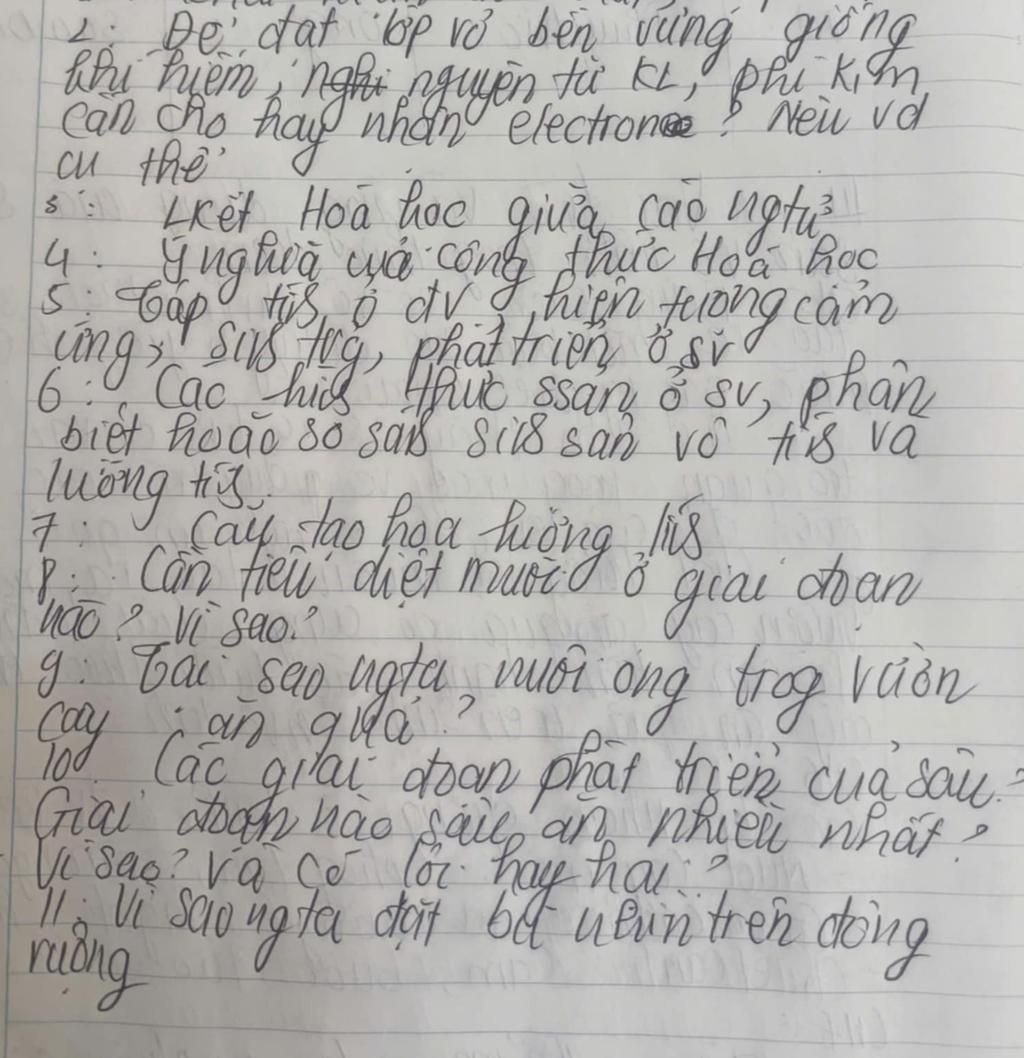 2: Để đạt lớp vỏ bền vững giống
khí hiếm, nguyên tử KL, phi kim
cần cho hay nhận electron? Nêu vd
cụ thể
3: Lkết Hoá học giữa các ngtử
4: Ý nghĩa của công thức Hoá học
5: Tập tís ở đv, hiện tượng cảm
ứng, sins trg, phát triển ở sv
6: Các hìns thức ssản ở sv, phân
biệt hoặc so sás sins sản vô tís và
lưỡng tís
7: Cấu tạo hoa lưỡng tís
8: Cần tiêu diệt muỗi ở giai đoạn
nào? Vì sao?
9: Tại sao ngta nuôi ong trog vườn
cây ăn quả?
10: Các giai đoạn phát triển của sâu?
Giai đoạn nào sâu ăn nhiều nhất?
Vì sao? Và có lợi hay hại?
11: Vì sao ngta đặt bù nhìn trên đồng
ruộng